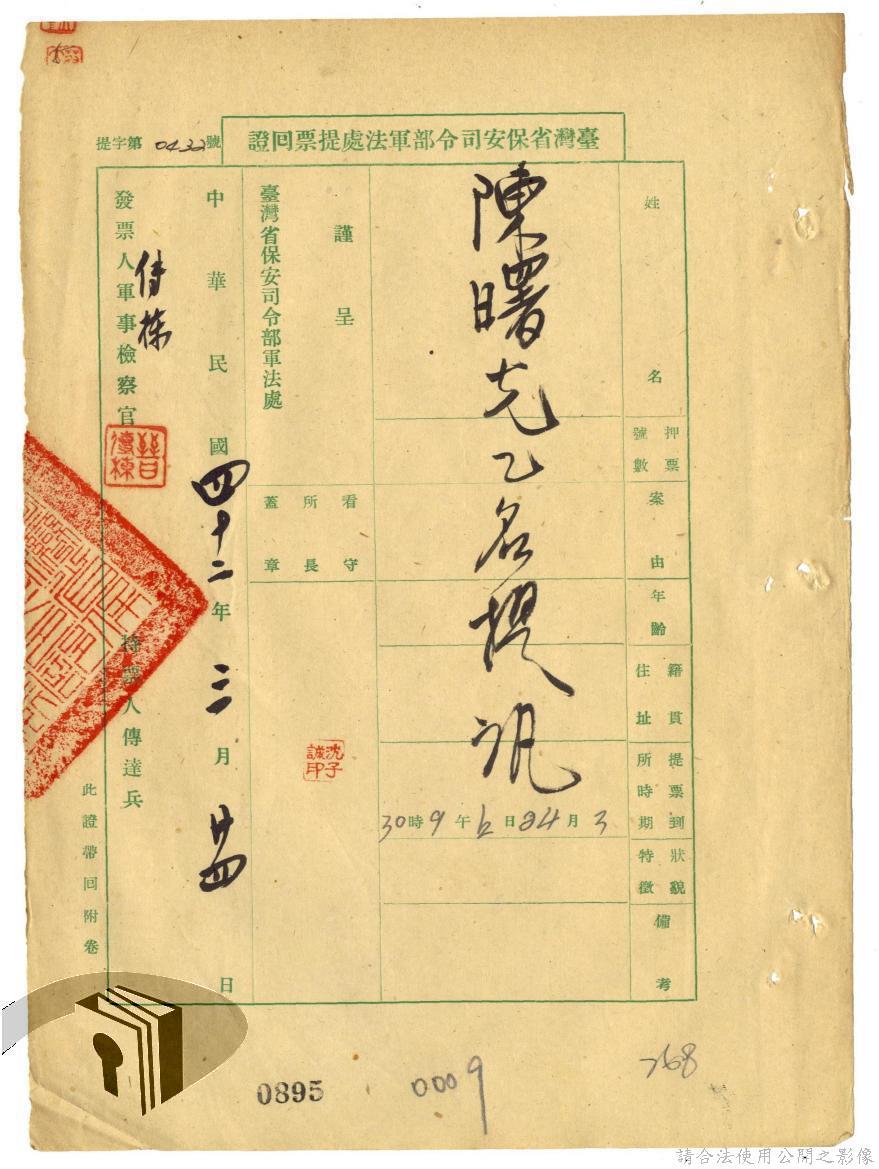 臺灣省保安司令部軍法處提票回證
提字第0432號
姓名
押票號數
案由
年齡
籍貫住址
提票到所時期
狀貌特徵
備考
陳曙光乙名提訊
3月24日上午9時30
謹呈
臺灣省保安司令部軍法處
看守所長蓋章
沈子誠印
中華民國四十二年三月廿四日
發票人軍事檢察官
持票人傳達兵
此證帶回附卷
0895
0009
768
請合法使用公開之影像